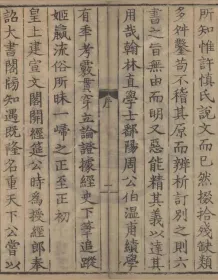 所知惟許慎氏說文而已然掇拾殘缺類
多舛鑿苟不稽其原而辨析訂別之則六
書之旨無由而明又惡能精其義以達其
用哉翰林直學士鄱陽周公伯溫甫績學
序
一
有年考覈貫穿立論證據經史下筆追蹤
姬嬴流俗所昧一歸之正至正初
皇上建宣文閣開經筵公時為授經郎奉
詔大書閣牓知遇既隆名重天下公嘗以